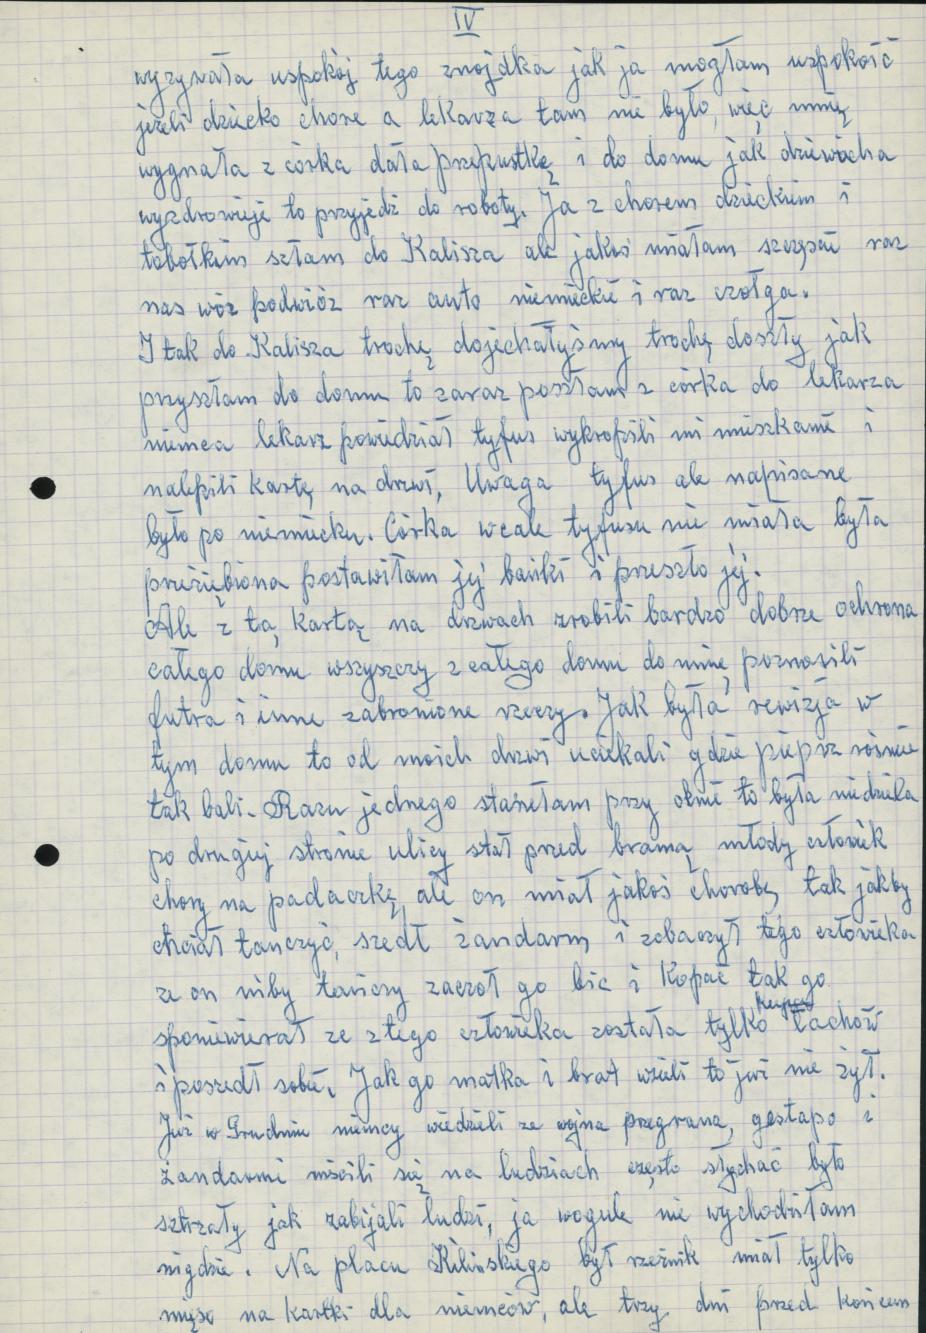 IV
wyzywała uspokój tego znojdka jak ja mogłam uspokojć
jeżeli dziecko chore a lekarza tam nie było, więc mnię
wygnała z córka dała przepustkę i do domu jak dziewócha
wyzdrowieje to przyjedź do roboty. Ja z chorem dzieckiem i
tobołkim szłam do Kalisza ale jakoś miałam szczęście raz
nas wóz podwióz raz auto niemieckie i raz czołga.
I tak do Kalisza trochę dojechałyśmy trochę doszły jak
przyszłam do domu to zaraz poszłam z córka do lekarza
niemca lekarz powiedział tyfus wykropili mi mieszkanie i
nalepili kartę na drzwi, Uwaga tyfus ale napisane
było po niemiecku. Córka wcale tyfusu nie miała była
przeziębiona postawiłam jej bańki i preszło jej.
Ale z tą kartą na drzwach zrobili bardzo dobrze ochrona
całego domu wszyszczy z całego domu do mnie poznosili
futra i inne zabronione rzeczy. Jak była rewizja w
tym domu to od moich drzwi uciekali gdzie pieprz rośnie
tak bali. Razu jednego stanełam przy oknie to była niedziela
po drugiej stronie ulicy stał pred bramą młody człowiek
chory na padaczkę, ale on miał jakoś chorobę tak jakby
chciał tanczyć, szedł żandarm i zobaczył tego człowieka
ze on niby tańczy zaczoł go bic i Kopać tak go
sponiewierał ze z tego człowieka została tylko łachów
i poszedł sobie. Jak go matka i brat wzieli to już nie żył.
Już w Grudniu niemcy wiedzieli ze wojna pregrana, gestapo i
żandarmi mścili się na ludziach często słychać było
sztrzały jak zabijali ludzi, ja wogule nie wychodziłam
nigdzie. Na placu Kilinskiego był rzeźnik miał tylko
mięso na Kartki dla niemców, ale trzy dni pred końcem